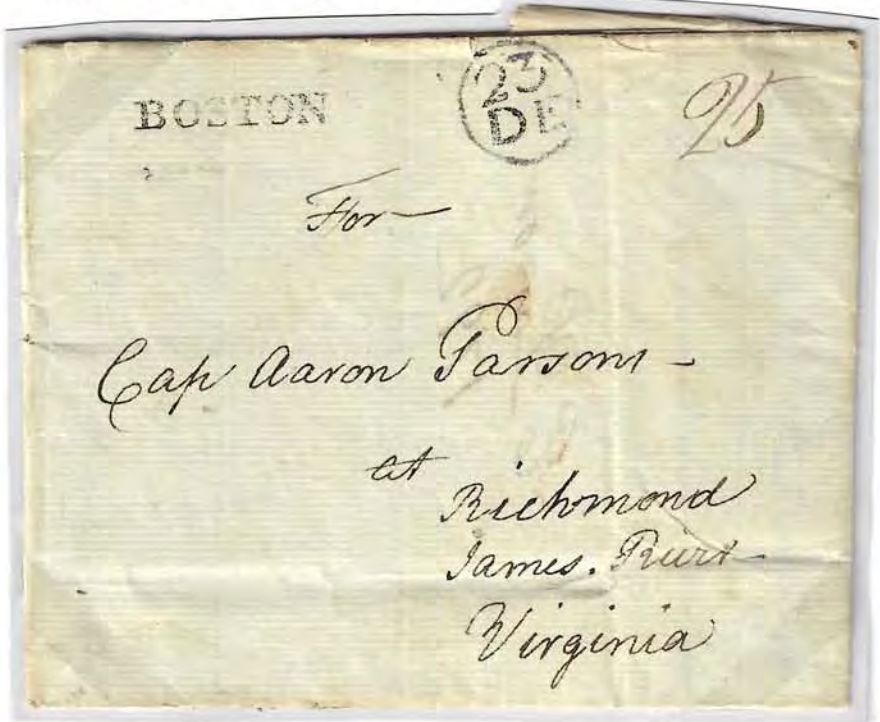 BOSTON
23
DE
25
For
Cap Aaron Parsons
at
Richmond
James. River
Virginia